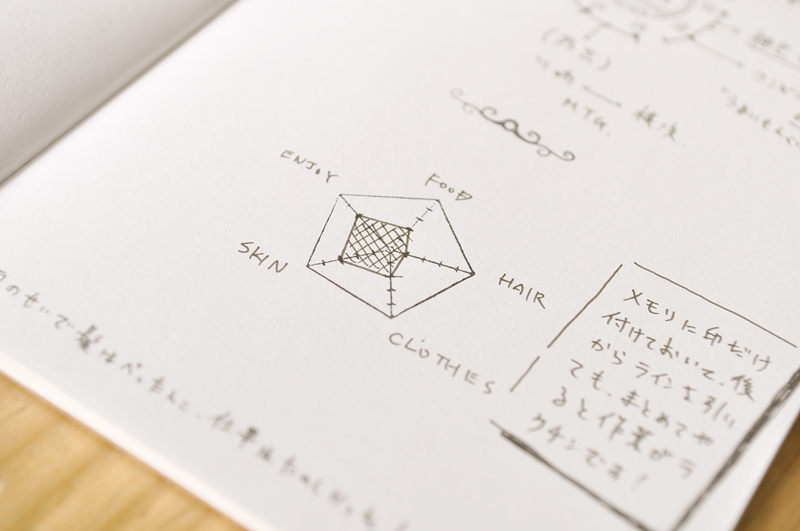 (大三)
MTG.
ENJOY
FOOD
SKIN
HAIR
CLOTHES
メモリに印だけ
付けておいて、後
からラインを引い
ても、まとめてや
ると作業がラ
クチンです!
のせいで髪はぺったんこ、仕事はたのしかった!